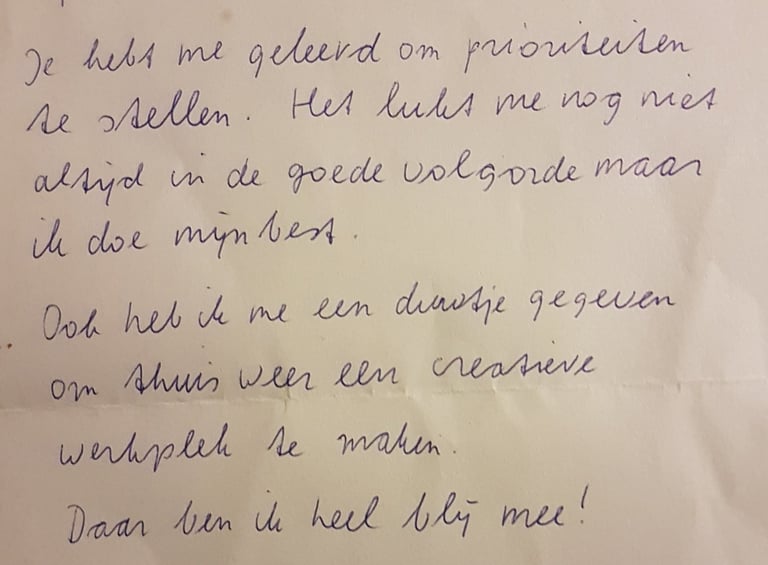 Je hebt me geleerd om prioriteiten
te stellen. Het lukt me nog niet
altijd in de goede volgorde maar
ik doe mijn best.
Ook heb ik me een duwtje gegeven
om thuis weer een creatieve
werkplek te maken.
Daar ben ik heel blij mee!